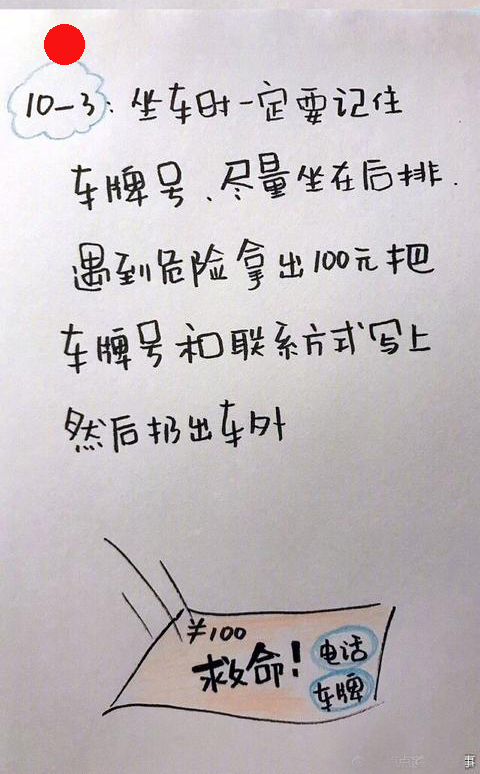 10-3: 坐车时一定要记住
车牌号、尽量坐在后排.
遇到危险拿出100元把
车牌号和联系方式写上
然后扔出车外
¥100
救命!
电话
车牌